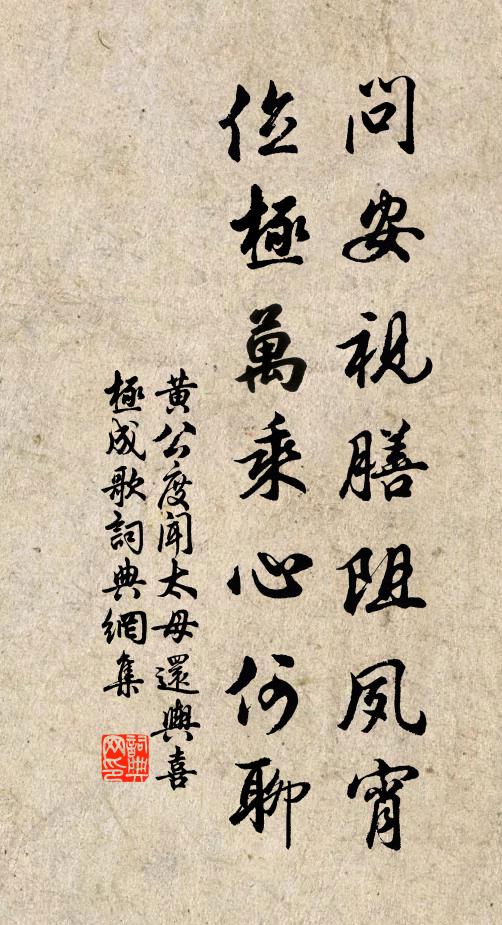 問安視膳阻夙宵
位極萬乘心何聊
黃公度聞太母還輿喜
極成歌詞典網集
詞典網印